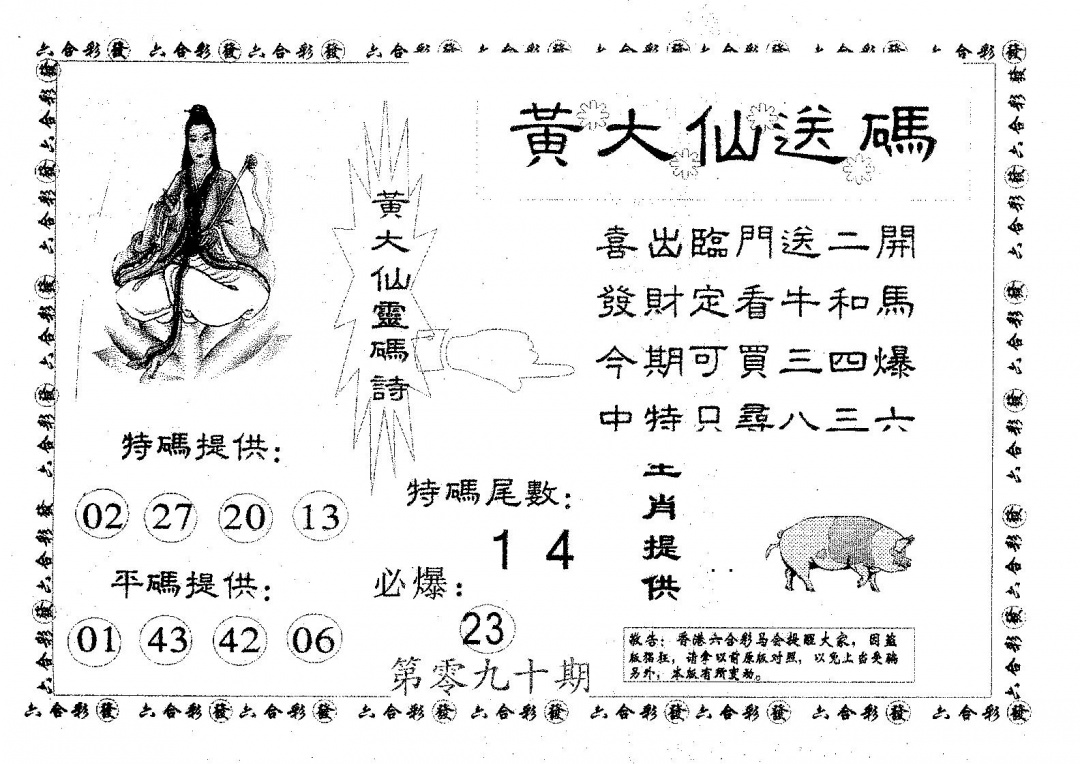 六合彩發 六合彩發 六合彩發 六合彩發 六合彩發 六合彩發 六合彩發 六合彩發 六合彩發
黃大仙送碼
黃大仙靈碼詩
喜出臨門送二開
發財定看牛和馬
今期可買三四爆
中特只尋八三六
特碼提供：
02 27 20 13
平碼提供：
01 43 42 06
特碼尾數：
1 4
必爆：
23
第零九十期
生肖提供
敬告：香港六合彩马会提醒大家，因盗
版猖狂，请拿以前原版对照，以免上当受骗
另外，本版有所变动。
六合彩發 六合彩發 六合彩發 六合彩發 六合彩發 六合彩發 六合彩發 六合彩發 六合彩發